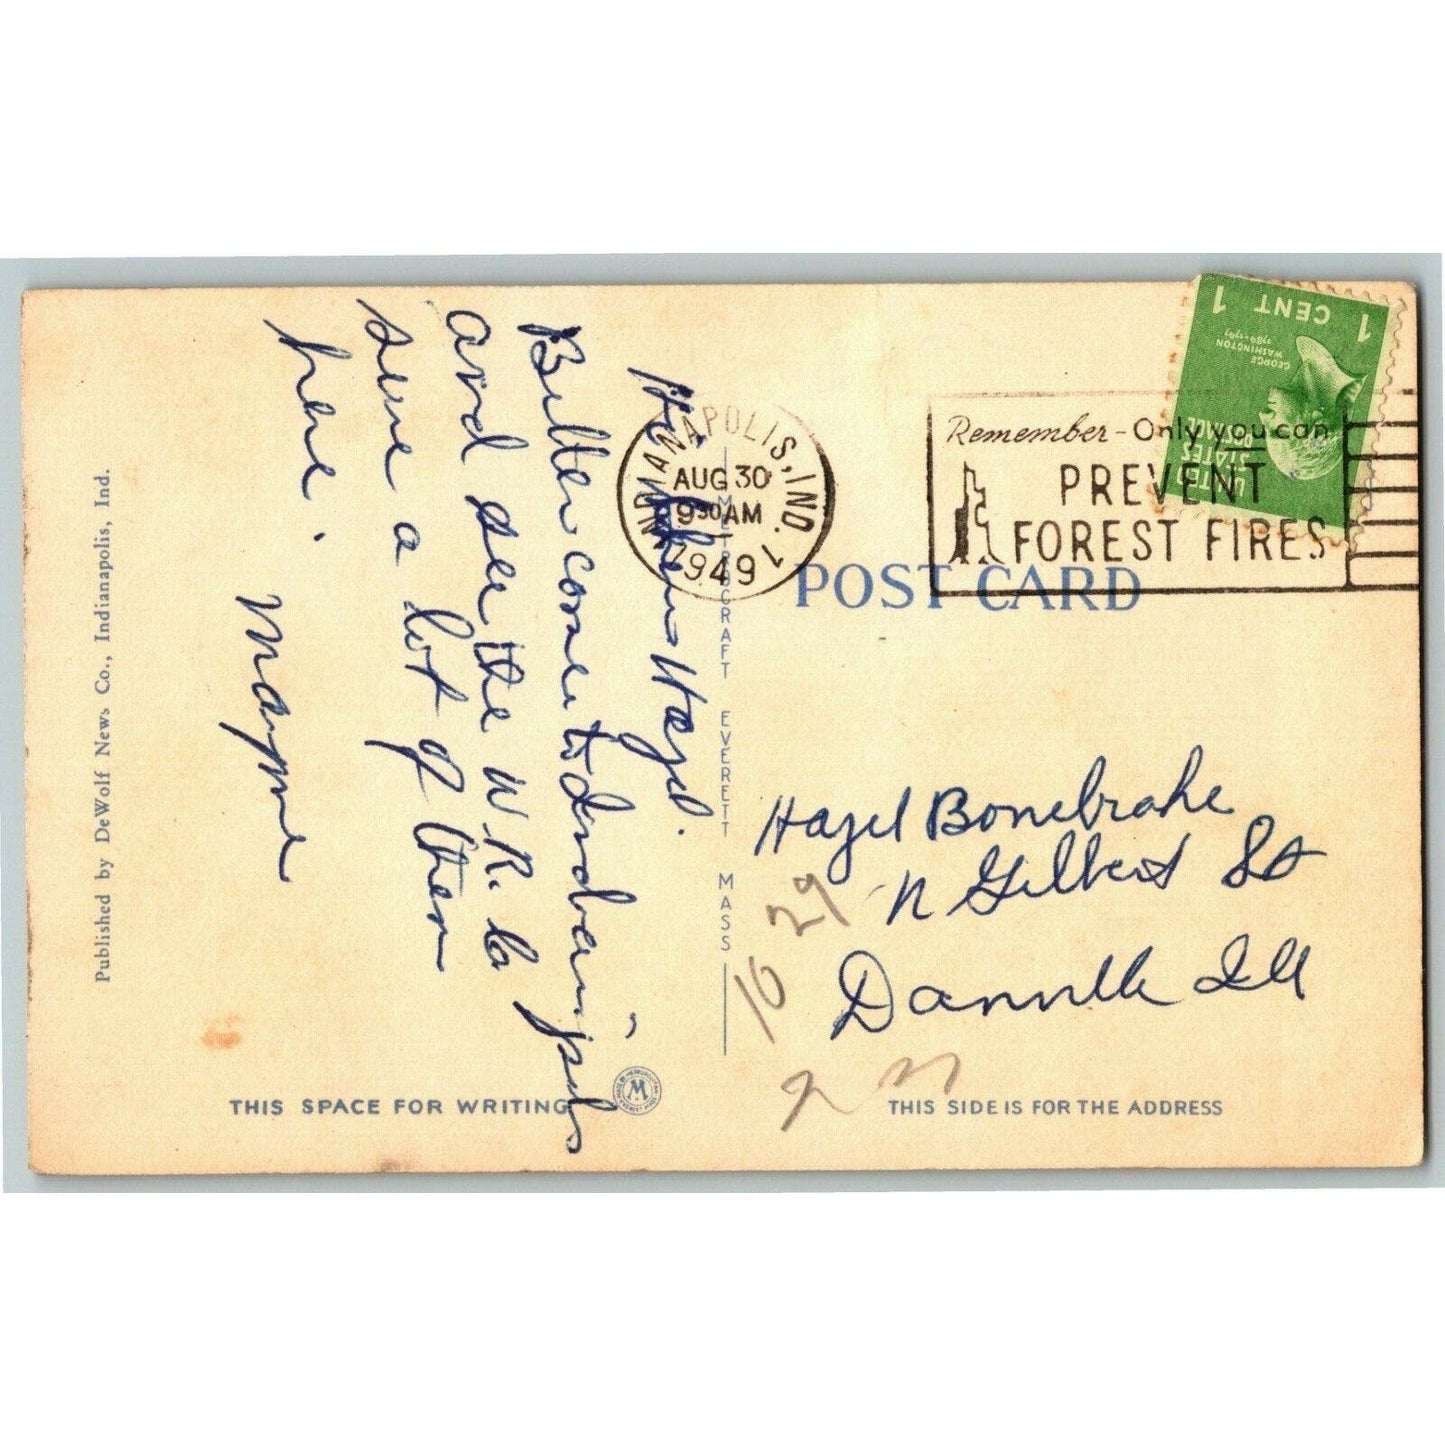 Hazel.
Better come to Indianapolis
and see the W.R.C.
seme a lot of them
here.
Mayme
Published by DeWolf News Co., Indianapolis, Ind.
THIS SPACE FOR WRITING
METROCRAFT EVERETT MASS
INDIANAPOLIS, IND. 1
AUG 30
9 30 AM
1949
Remember - Only you can
PREVENT
FOREST FIRES
1 CENT 1
GEORGE
WASHINGTON
1789-1797
UNITED
STATES
POSTAGE
POST CARD
Hazel Bonebrake
N Gilbert St
Danville Ill
29
10
THIS SIDE IS FOR THE ADDRESS